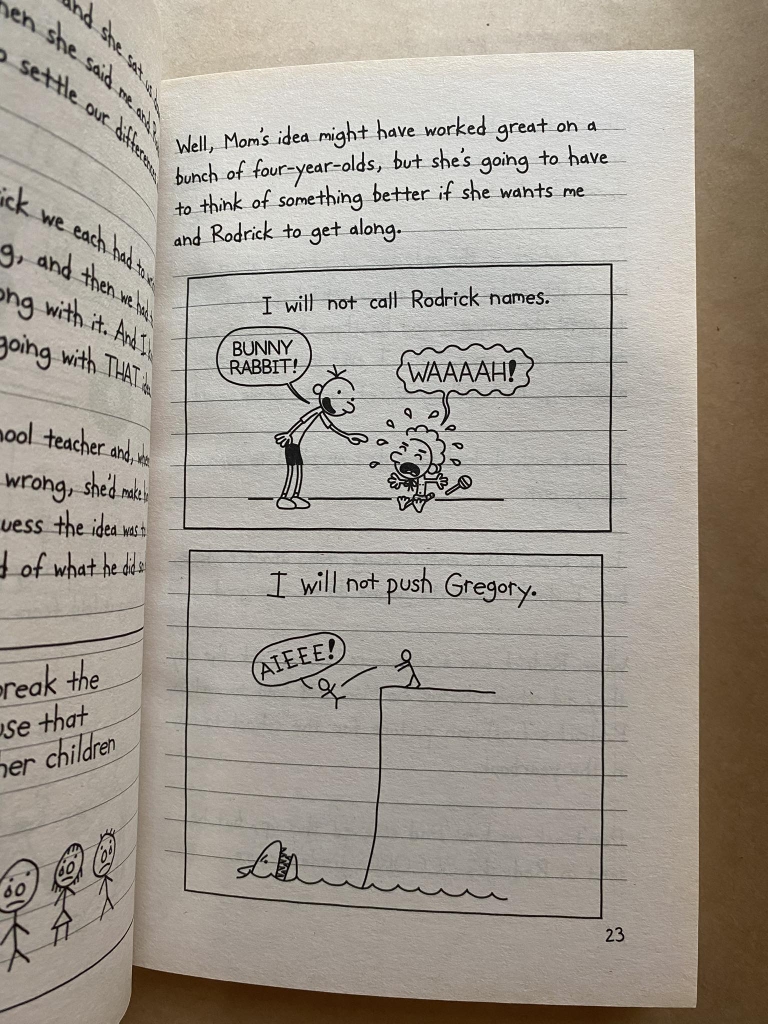 and she sat us
hen she said me and
settle our differences
ick we each had to
g, and then we had
ong with it. And I
going with THAT
ool teacher and,
wrong, she'd make
uess the idea was
of what he did
break the
use that
her children
Well, Mom's idea might have worked great on a
bunch of four-year-olds, but she's going to have
to think of something better if she wants me
and Rodrick to get along.
I will not call Rodrick names.
BUNNY
RABBIT!
WAAAAH!
I will not push Gregory.
AIEEE!
23